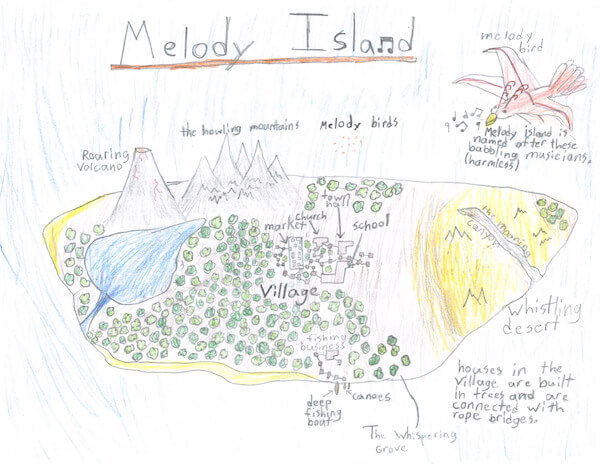 Melody Island
melody
bird
Melody island is
named after these
babbling musicians.
(harmless)
the howling mountains
Melody birds
Roaring
volcano
town
hall
church
market
school
Village
the moaning
canyon
whistling
desert
fishing
business
deep
fishing
boat
canoes
The Whispering
Grove
houses in the
village are built
in trees and are
connected with
rope bridges.